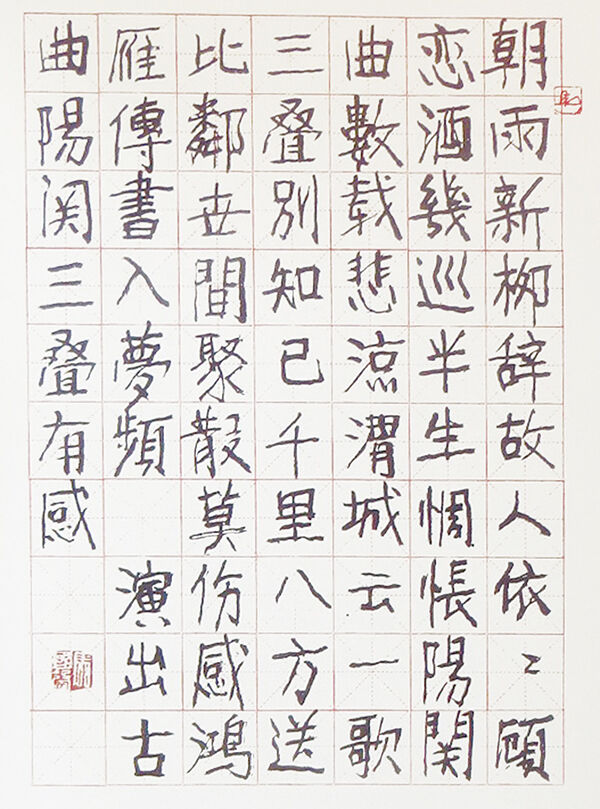 朝雨新柳辞故人依〻頋
恋酒幾巡半生惆悵陽関
曲數载悲凉渭城云一歌
三叠別知己千里八方送
比鄰世間聚散莫伤感鴻
雁傳書入夢頻 演出古
曲陽関三叠有感